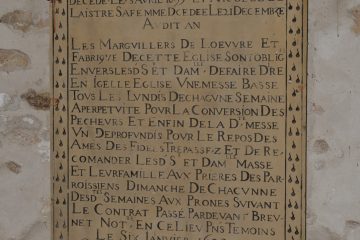 DECEDE LE
LAISTRE SA FEMME DCEDEE LE 21 DECEMBRE
AUDIT AN
LES MARGVILLERS DE LOEUVRE ET
FABRIQVE DE CETTE EGLISE SONT OBLIG
ENVERS LESD S ET DAM DE FAIRE DIRE
EN ICELLE EGLISE VNE MESSE BASSE
TOUS LES LVNDIS DE CHACVNE SEMAINE
A PERPETVITE POVR LA CONVERSION DES
PECHEVRS ET ENFIN DE LA D MESSE
VN DEPROFVNDIS POVR LE REPOS DES
AMES DES FIDELS TREPASSEZ ET DE RE
COMANDER LESD S ET DAM MASSE
ET LEVR FAMILLE AUX PRIERES DES PAR
ROISSIENS DIMANCHE DE CHACVNNE
DESD SEMAINES AUX PRONES SVIVANT
LE CONTRAT PASSE PARDEVANT BREV
NET NOT EN CE LIEV PNS TEMOINS
LE SIX IANVIER